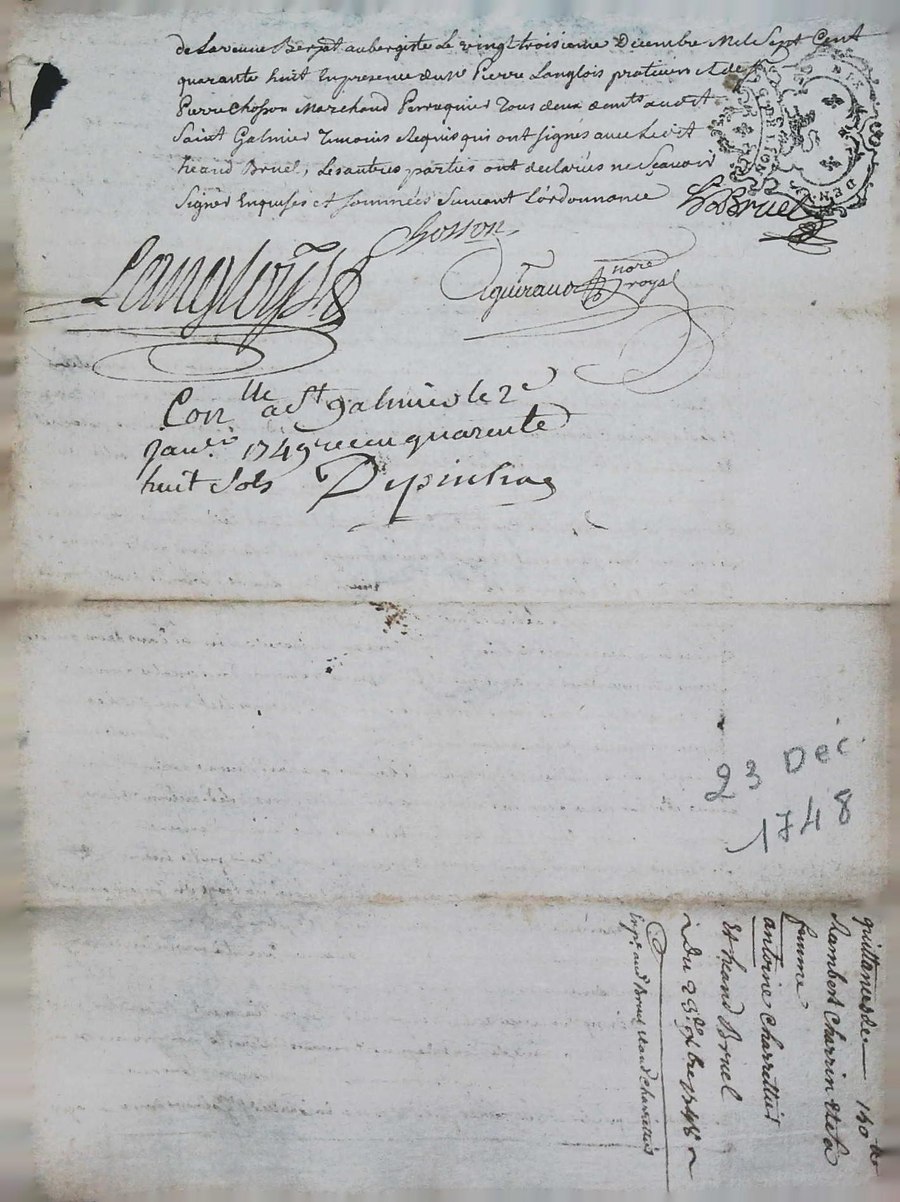 de Laveuve Berjat aubergiste Le vingt troisieme Decembre Mil Sept Cent
quarante huit En presence de Sr Pierre Langlois praticien et de Sr
Pierre Chosson Marchand Perruquier Tous deux demts audit
Saint Galmier Temoins Requis qui ont signés avec Ledit
heand Bruel, Les autres parties ont declarées ne Scavoir
Signer Enquises et sommées Suivant L'ordonnance
Bruel
Chosson
Langloys
nore royal
GEN DE LION
Con lle a st galmier le 2e
janv. 1749 recu quarente
huit sols Depinhac
23 Déc.
1748
quittance de 140 ll
Rambert Charrin et sa
femme
antoine Charretier
Et heand Bruel
Du 23e xbre 1748